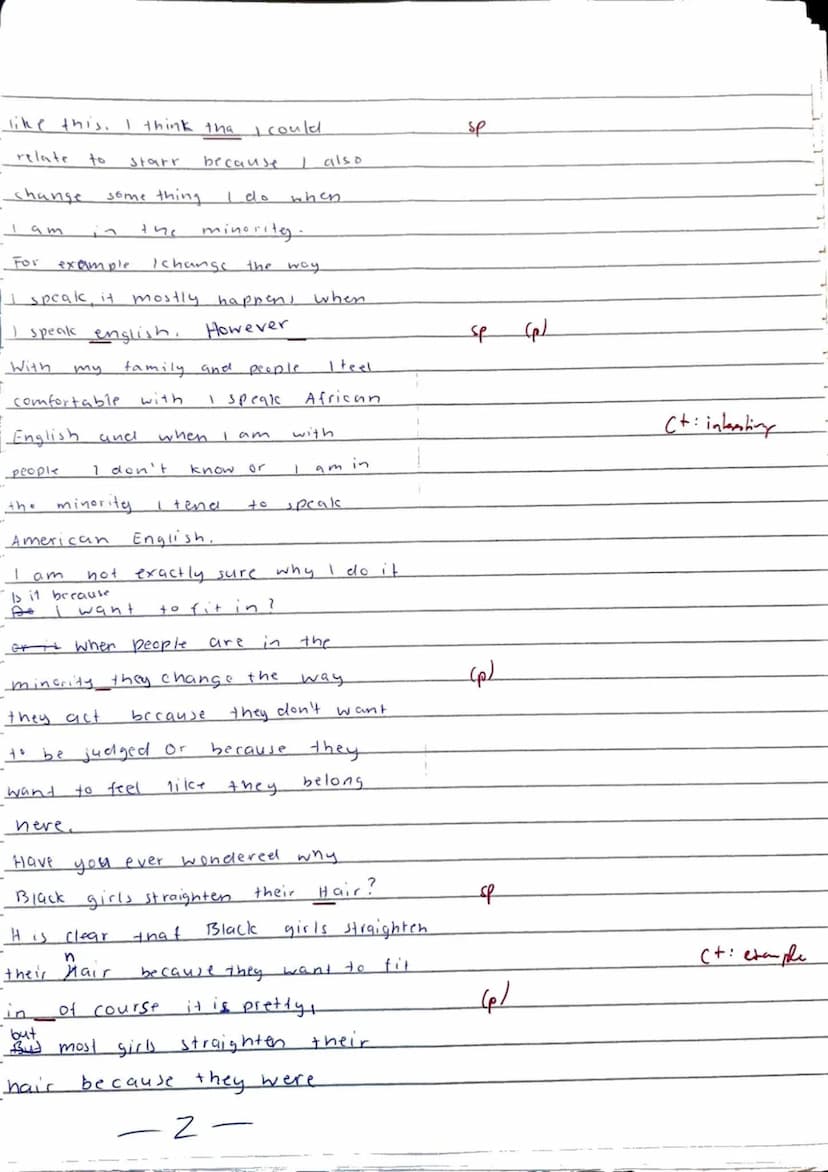 like this. I think tha I could sp
relate to starr because I also
change some thing I do when
I am in the minority.
For example I change the way
I speak, it mostly happens when
I speak english. However_ sp (p)
With my family and people I feel
comfortable with I speak African
English and when I am with C+: intesting
people I don't know or I am in
the minority I tend to speak
American English.
I am not exactly sure why I do it
Is it because
I want to fit in?
or it when people are in the
minority_they change the way (p)
they act because they don't want
to be judged or because they
want to feel like they belong
here.
Have you ever wondered why
Black girls straighten their Hair? sp
It is clear that Black girls straighten
their hair because they want to fit C+: example
in_of course it is pretty, (p)
but
But most girls straighten their
hair because they were
— 2 —